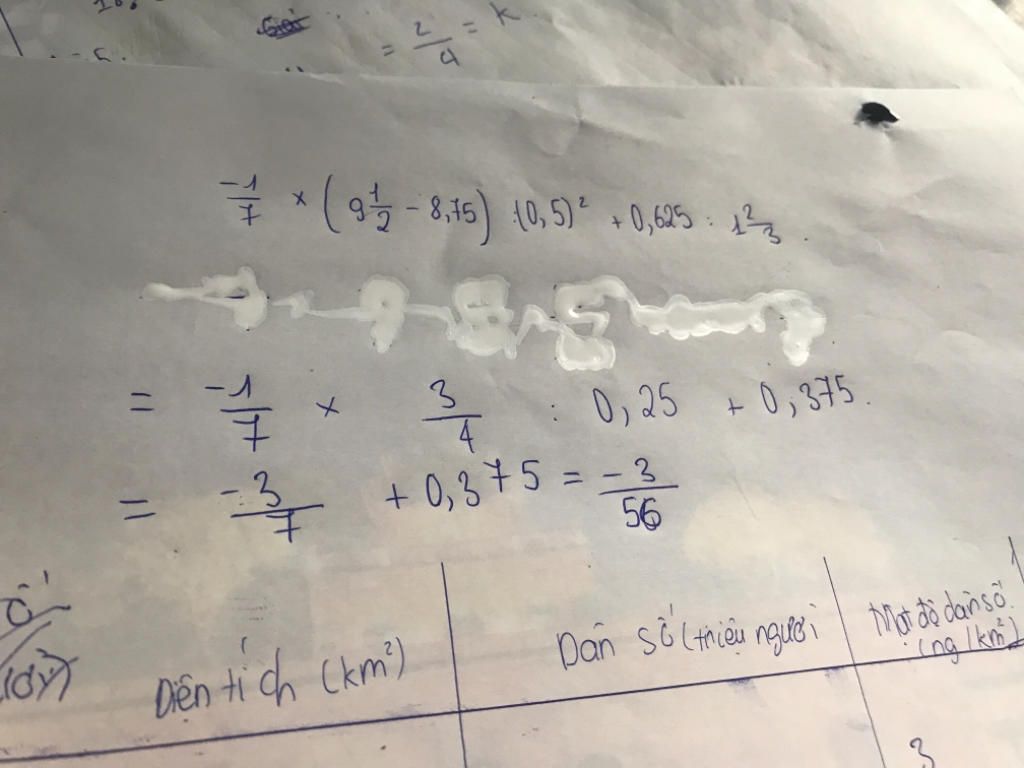 = 2/4 = k
-1/7 × (9 1/2 - 8,75) : (0,5)² + 0,625 : 1 2/3.
= -1/7 × 3/4 : 0,25 + 0,375.
= -3/7 + 0,375 = -3/56
Diện tích (km²)
Dân số (triệu người
Mật độ dân số.
(ng/km²)
3